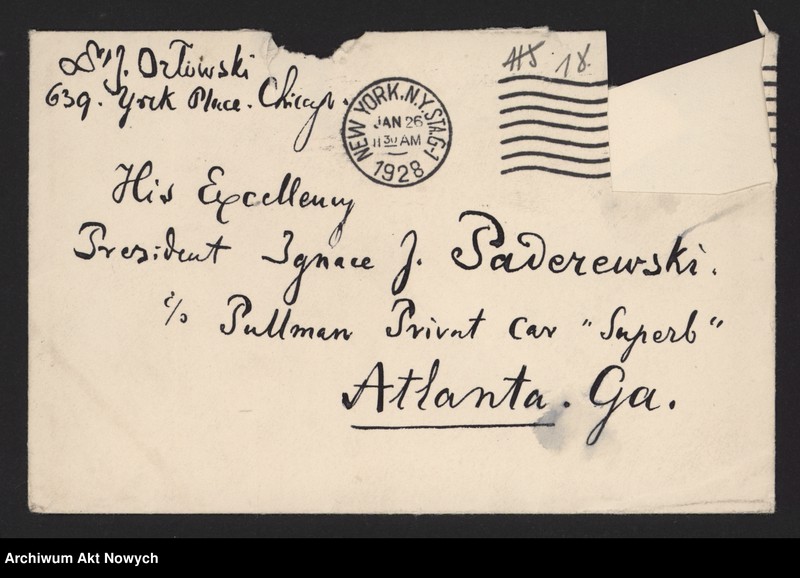 Dr J. Orłowski
639. York Place. Chicago.
45 18.
NEW YORK, N.Y. STA. G-1
JAN 26
11 30 AM
1928
His Excellency
President Ignace J. Paderewski.
c/o Pullman Privat Car "Superb"
Atlanta. Ga.
Archiwum Akt Nowych